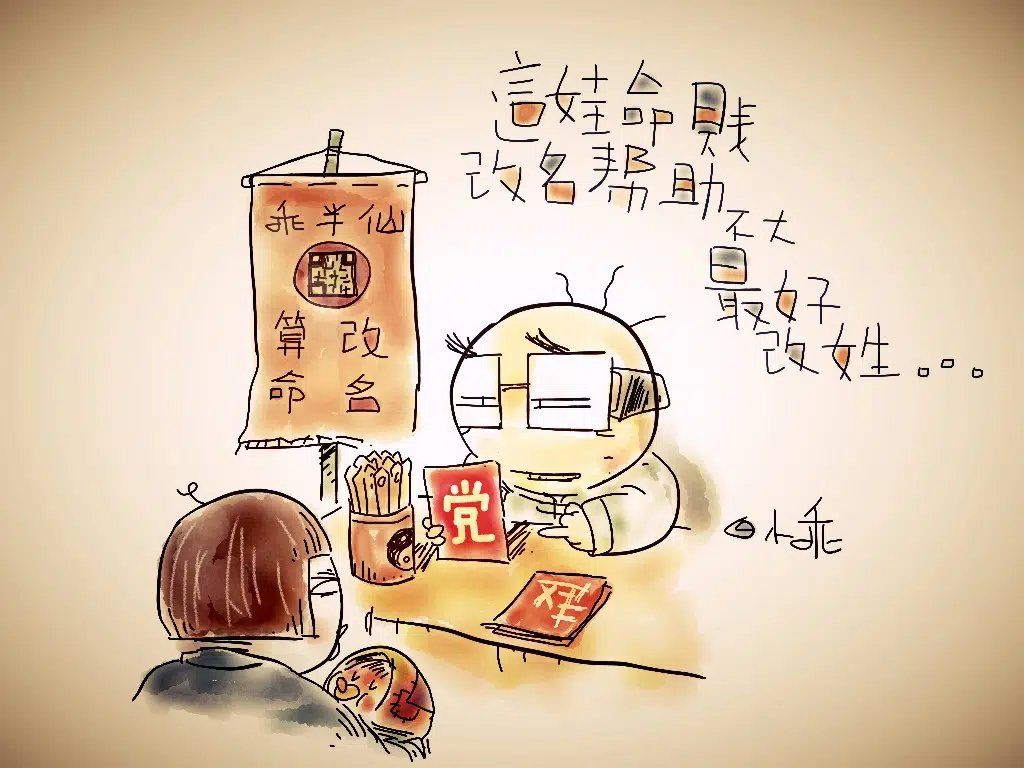 這娃命賎
改名帮助
不大
最好
改姓...
乖半仙
算 改
命 名
党
姓
@小乖